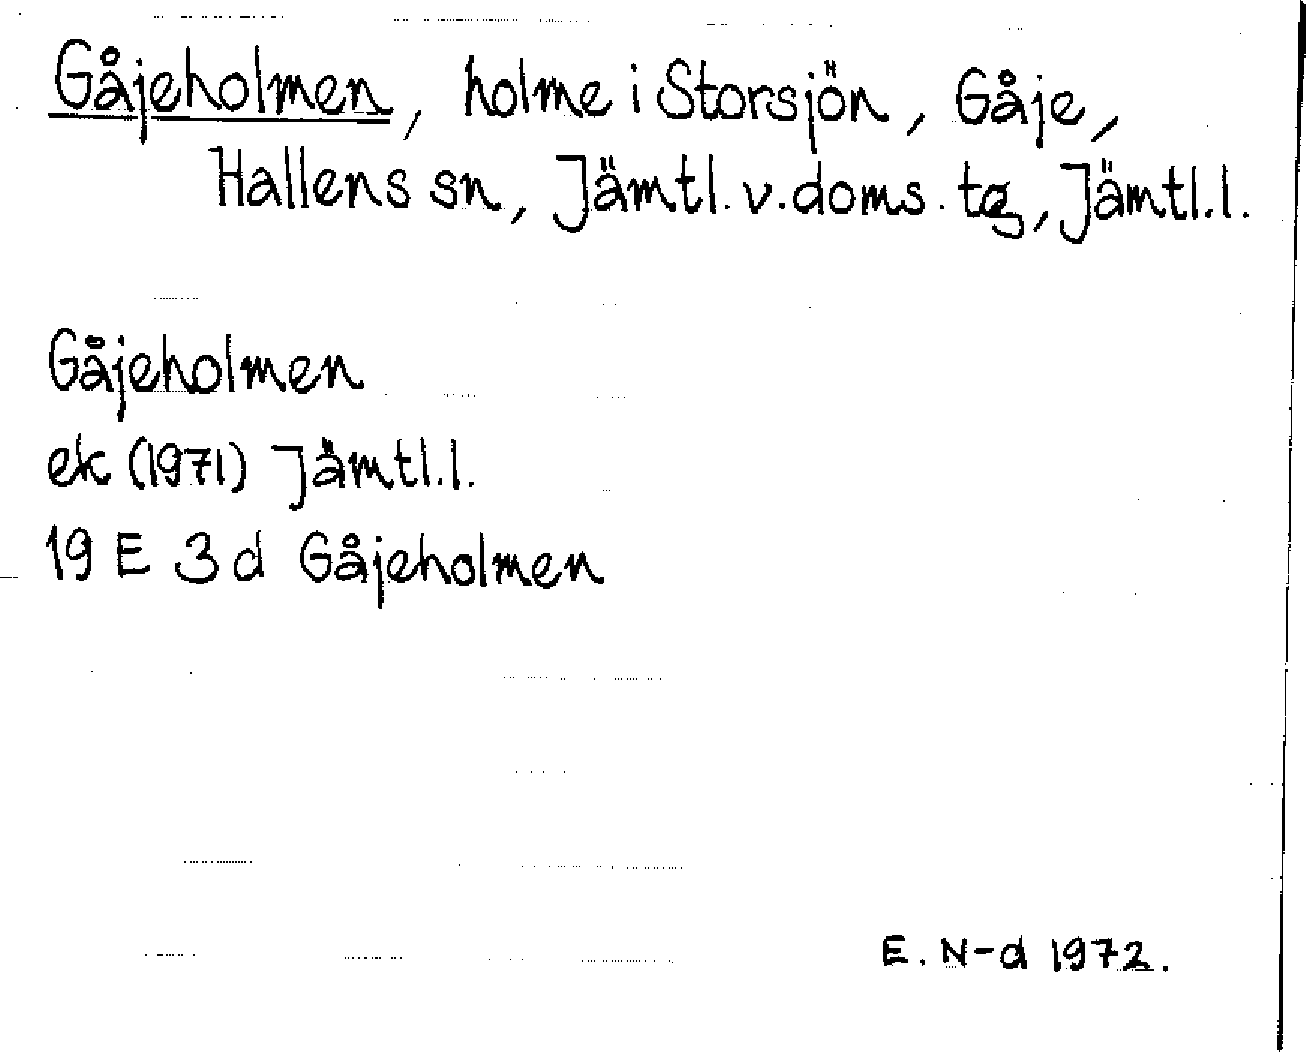 Gåjeholmen, holme i Storsjön, Gåje,
Hallens sn, Jämtl. v. doms. tg, Jämtl.l.
Gåjeholmen
ek (1971) Jämtl.l.
19 E 3 d Gåjeholmen
E. N-d 1972.